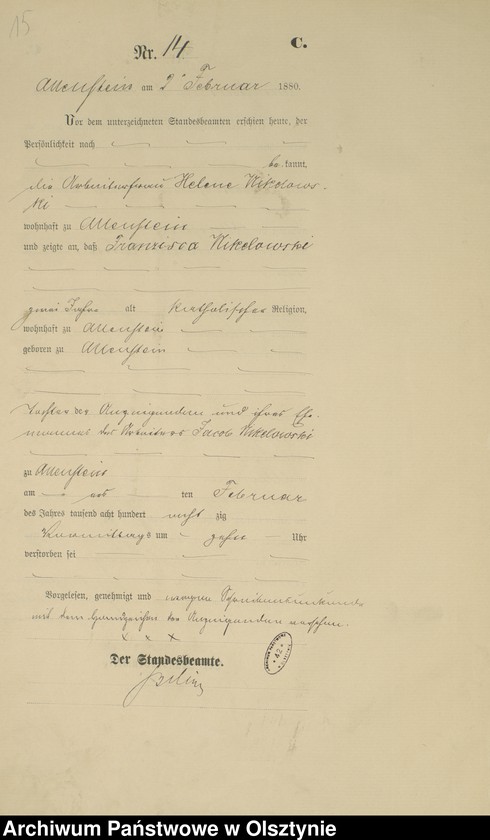 15
Nr. 14
C.
Allenstein am 2ten Februar 1880.
Vor dem unterzeichneten Standesbeamten erschien heute, der
Persönlichkeit nach
be kannt,
die Arbeiterfrau Helene Nikolows-
ki
wohnhaft zu Allenstein
und zeigte an, daß Franzisca Nikolowski
zwei Jahre alt katholischer Religion,
wohnhaft zu Allenstein
geboren zu Allenstein
Tochter der Anzeigenden und ihres Ehe-
mannes des Arbeiters Jacob Nikolowski
zu Allenstein
am ten Februar
des Jahres tausend acht hundert acht zig
Vormittags um zehn Uhr
verstorben sei
Vorgelesen, genehmigt und wegen Schreibensunkunde
mit dem Handzeichen der Anzeigenden versehen.
x x x
Der Standesbeamte.
42
Archiwum Państwowe w Olsztynie